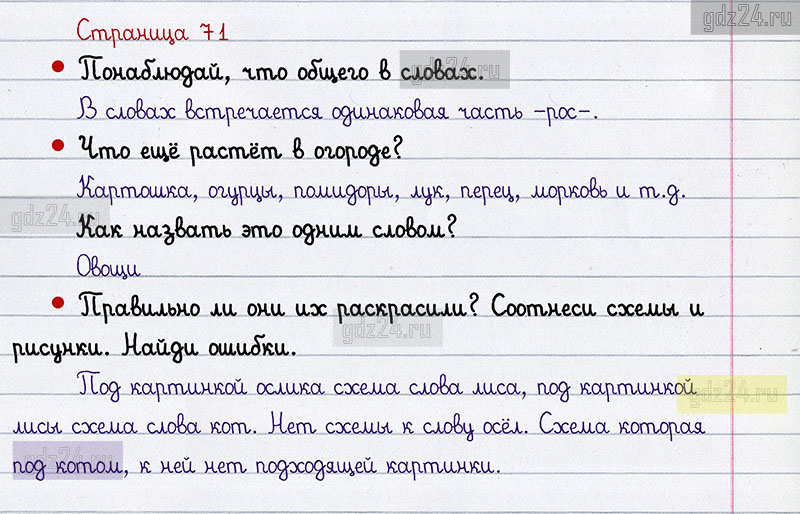 gdz24.ru
Страница 71
• Понаблюдай, что общего в словах.
gdz24.ru
В словах встречается одинаковая часть –рос–.
• Что ещё растёт в огороде?
Картошка, огурцы, помидоры, лук, перец, морковь и т.д.
gdz24.ru
Как назвать это одним словом?
Овощи
• Правильно ли они их раскрасили? Соотнеси схемы и
gdz24.ru
рисунки. Найди ошибки.
Под картинкой ослика схема слова лиса, под картинкой
gdz24.ru
лисы схема слова кот. Нет схемы к слову осёл. Схема которая
под котом, к ней нет подходящей картинки.
gdz24.ru